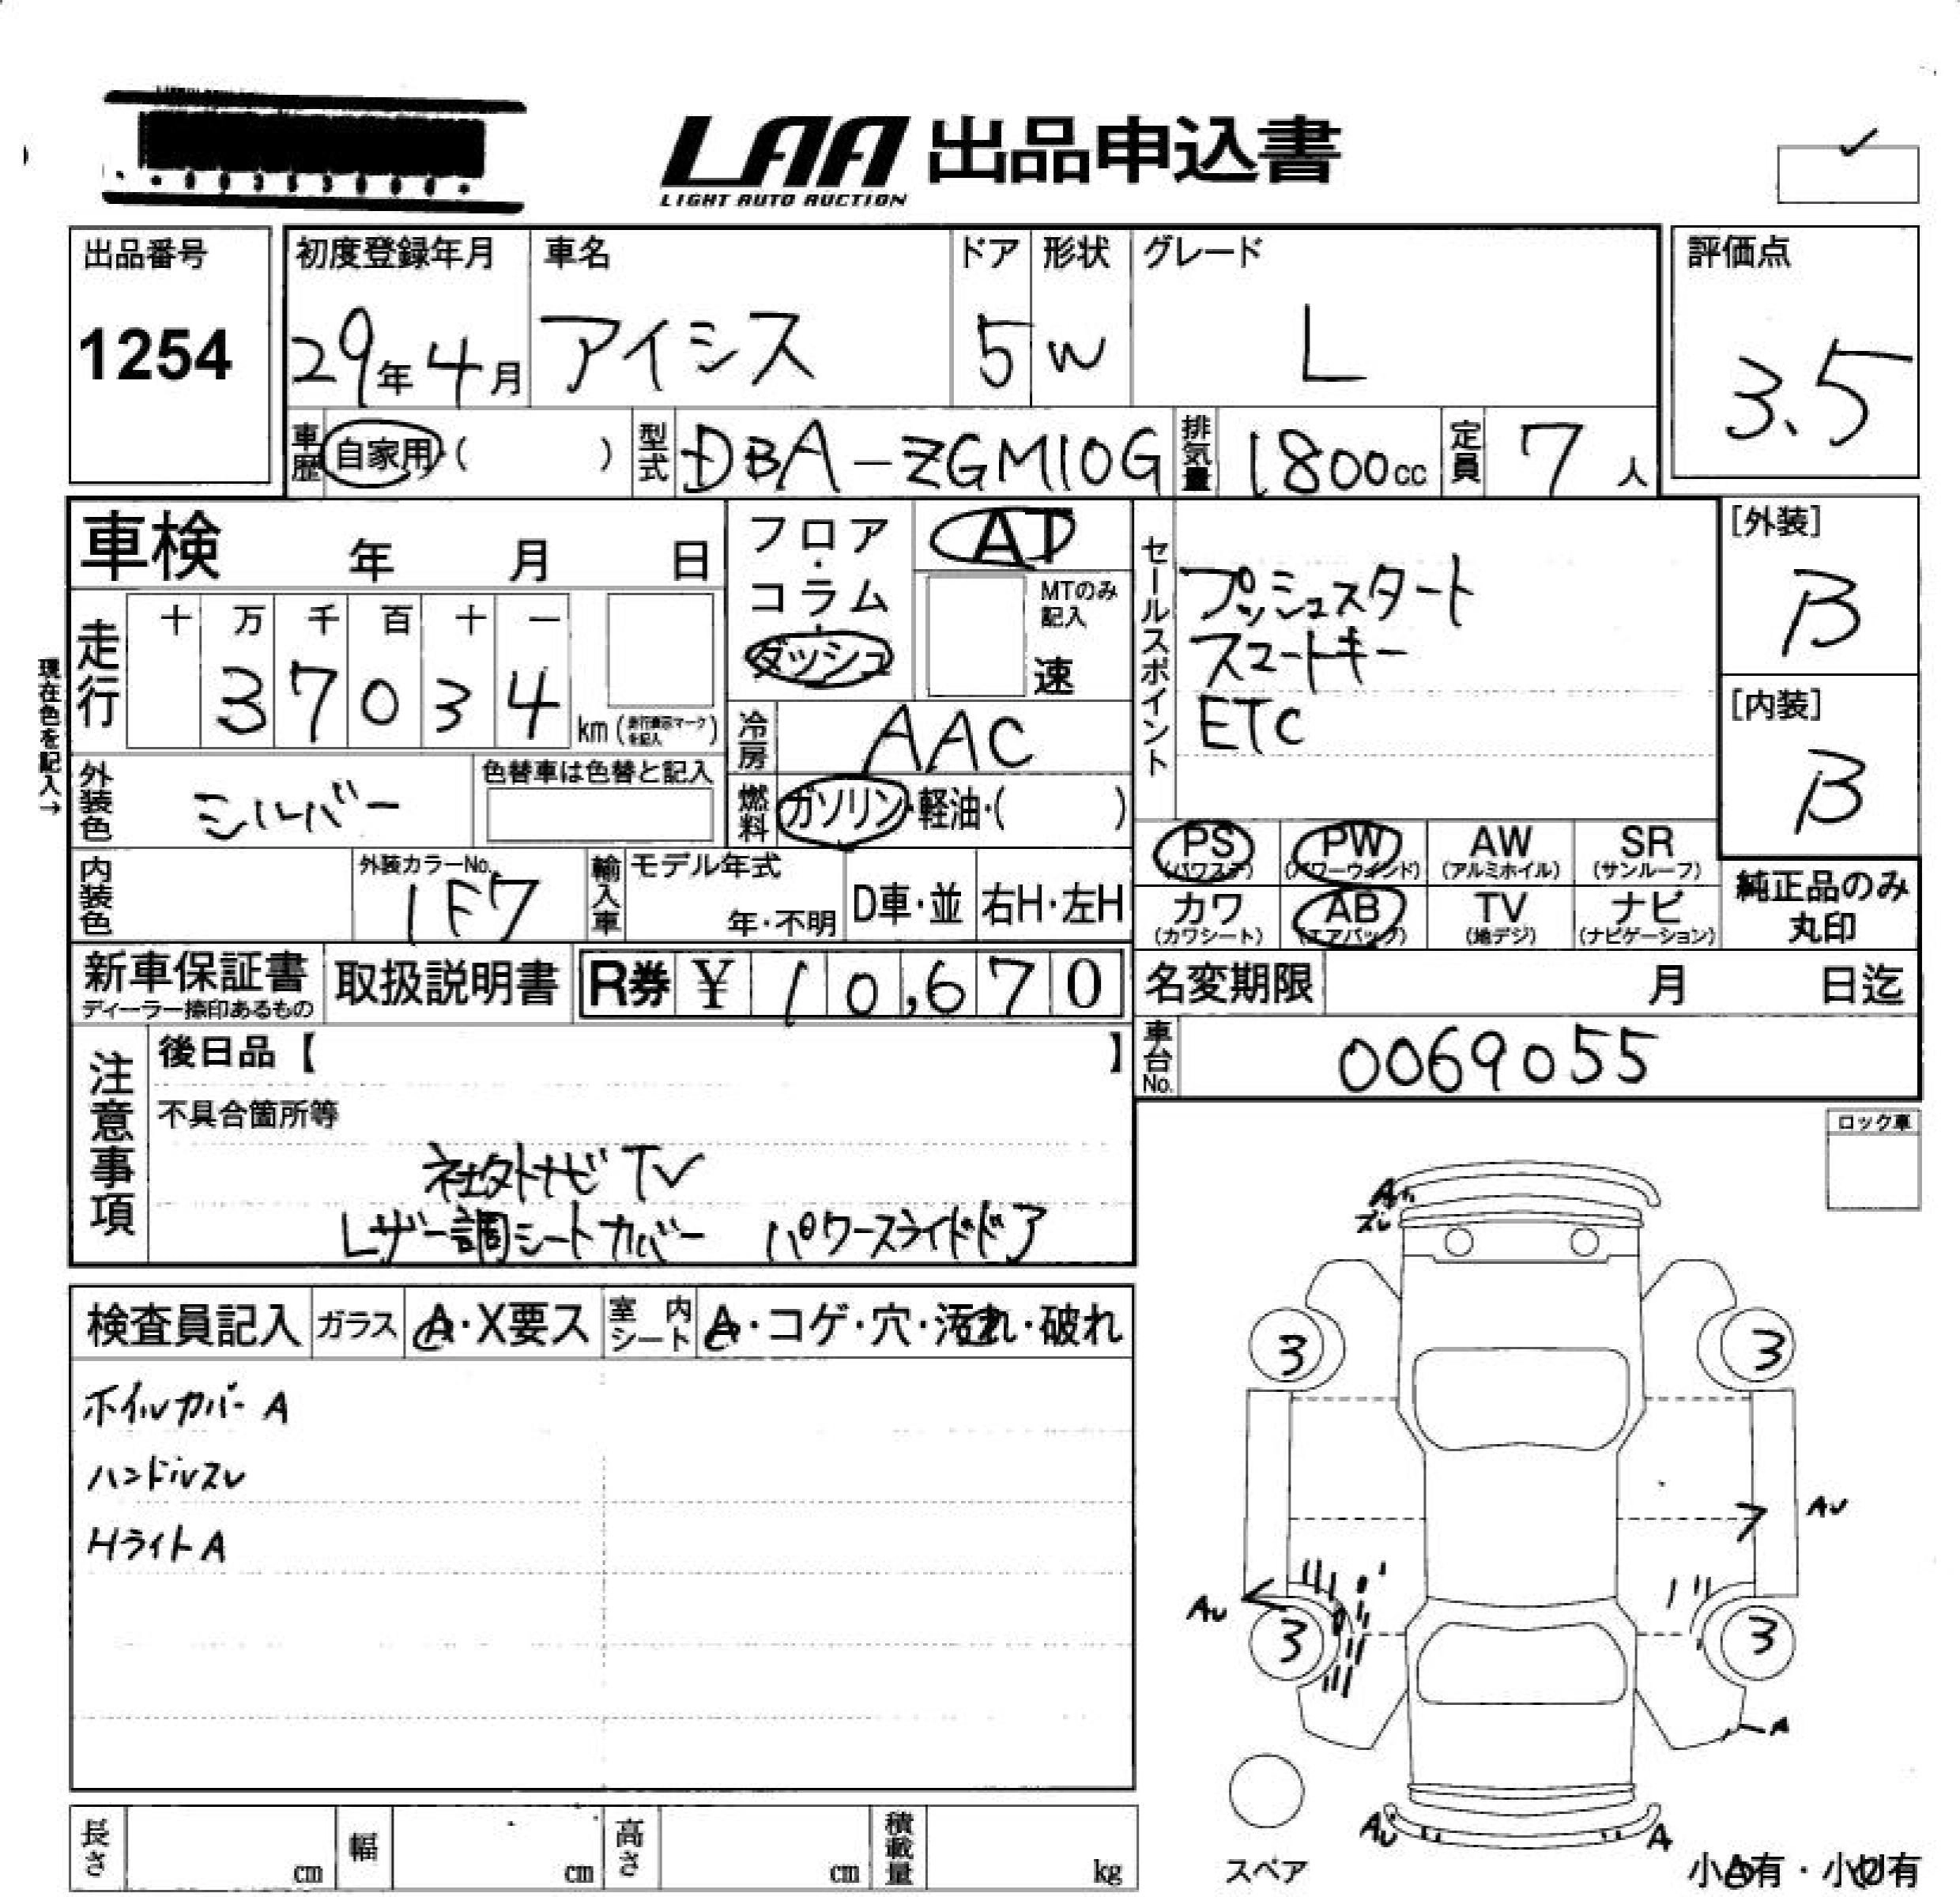 LAA 出品申込書
LIGHT AUTO AUCTION
出品番号
1254
初度登録年月
29年4月
車名
アイシス
ドア
5
形状
W
グレード
L
評価点
3.5
車歴
自家用・( )
型式
DBA-ZGM10G
排気量
1800cc
定員
7人
車検 年 月 日
フロア・コラム・ダッシュ
AT
MTのみ記入
速
セールスポイント
プッシュスタート
スマートキー
ETC
[外装]
B
[内装]
B
現在色を記入→
走行
十 万 千 百 十 一
3 7 0 3 4
km(走行表示マークを記入)
冷房
AAC
外装色
シルバー
色替車は色替と記入
燃料
ガソリン・軽油・( )
PS (パワステ)
PW (パワーウインド)
AW (アルミホイル)
SR (サンルーフ)
カワ (カワシート)
AB (エアバッグ)
TV (地デジ)
ナビ (ナビゲーション)
純正品のみ
丸印
内装色
外装カラーNo.
1F7
輸入車
モデル年式
年・不明
D車・並
右H・左H
新車保証書
ディーラー捺印あるもの
取扱説明書
R券 ¥ 10,670
名変期限 月 日迄
車台No.
0069055
注意事項
後日品【 】
不具合箇所等
社外ナビTV
レザー調シートカバー パワースライドドア
ロック車
検査員記入
ガラス
A・X要ス
室内シート
A・コゲ・穴・汚れ・破れ
ホイルカバーA
ハンドルスレ
HライトA
A
スレ
3 3
AU
AU
3 3
A
AU
A
スペア
小A有・小U有
長さ cm
幅 cm
高さ cm
積載量 kg